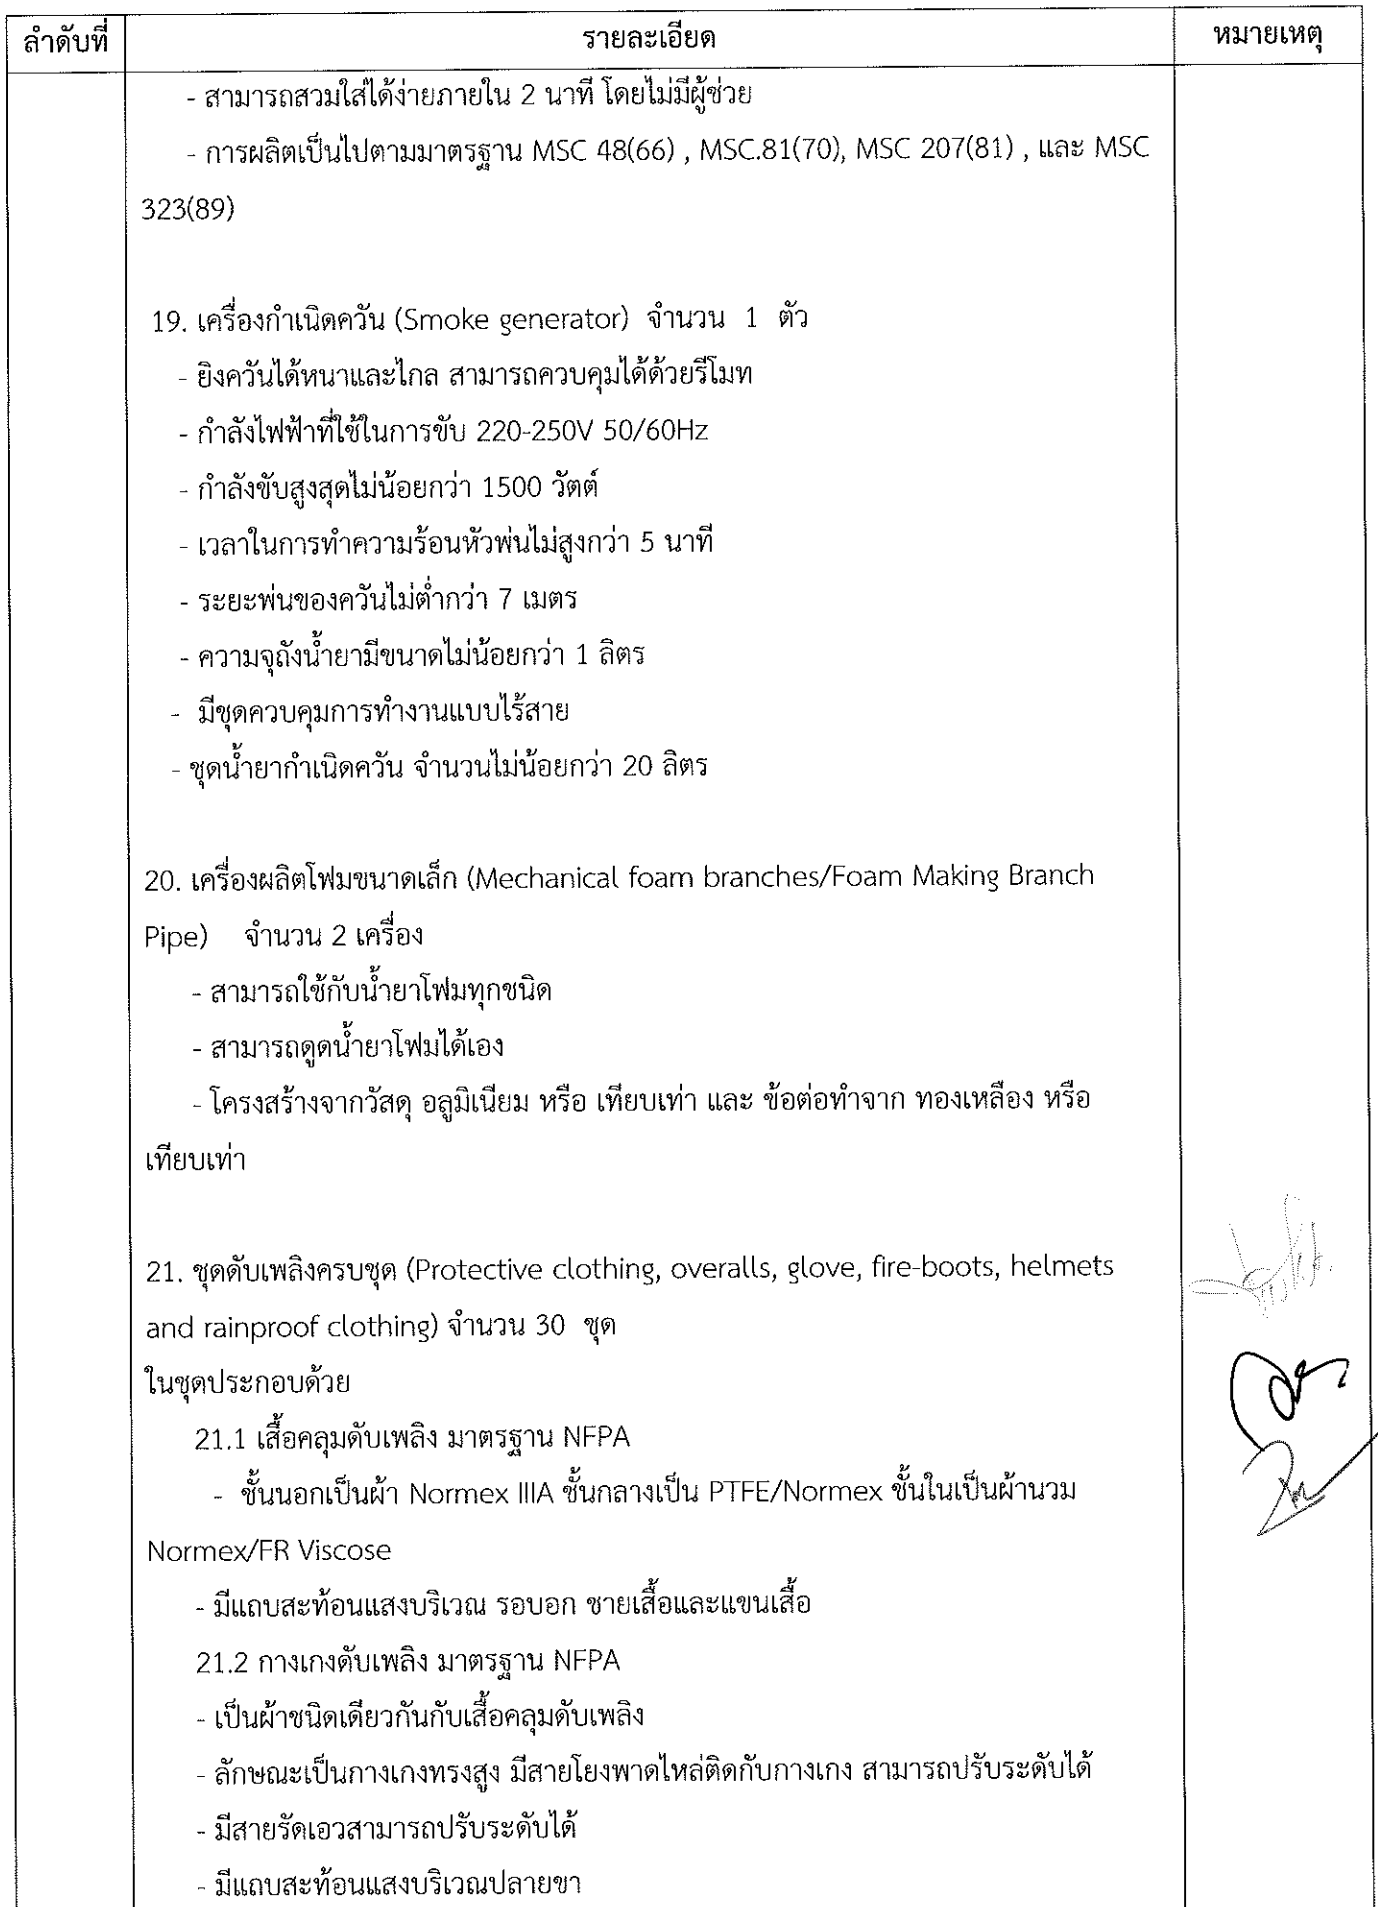 ลำดับที่ รายละเอียด หมายเหตุ
- สามารถสวมใส่ได้ง่ายภายใน 2 นาที โดยไม่มีผู้ช่วย
- การผลิตเป็นไปตามมาตรฐาน MSC 48(66) , MSC.81(70), MSC 207(81) , และ MSC
323(89)
19. เครื่องกำเนิดควัน (Smoke generator) จำนวน 1 ตัว
- ยิงควันได้หนาและไกล สามารถควบคุมได้ด้วยรีโมท
- กำลังไฟฟ้าที่ใช้ในการขับ 220-250V 50/60Hz
- กำลังขับสูงสุดไม่น้อยกว่า 1500 วัตต์
- เวลาในการทำความร้อนหัวพ่นไม่สูงกว่า 5 นาที
- ระยะพ่นของควันไม่ต่ำกว่า 7 เมตร
- ความจุถังน้ำยามีขนาดไม่น้อยกว่า 1 ลิตร
- มีชุดควบคุมการทำงานแบบไร้สาย
- ชุดน้ำยากำเนิดควัน จำนวนไม่น้อยกว่า 20 ลิตร
20. เครื่องผลิตโฟมขนาดเล็ก (Mechanical foam branches/Foam Making Branch
Pipe) จำนวน 2 เครื่อง
- สามารถใช้กับน้ำยาโฟมทุกชนิด
- สามารถดูดน้ำยาโฟมได้เอง
- โครงสร้างจากวัสดุ อลูมิเนียม หรือ เทียบเท่า และ ข้อต่อทำจาก ทองเหลือง หรือ
เทียบเท่า
21. ชุดดับเพลิงครบชุด (Protective clothing, overalls, glove, fire-boots, helmets
and rainproof clothing) จำนวน 30 ชุด
ในชุดประกอบด้วย
21.1 เสื้อคลุมดับเพลิง มาตรฐาน NFPA
- ชั้นนอกเป็นผ้า Normex IIIA ชั้นกลางเป็น PTFE/Normex ชั้นในเป็นผ้านวม
Normex/FR Viscose
- มีแถบสะท้อนแสงบริเวณ รอบอก ชายเสื้อและแขนเสื้อ
21.2 กางเกงดับเพลิง มาตรฐาน NFPA
- เป็นผ้าชนิดเดียวกันกับเสื้อคลุมดับเพลิง
- ลักษณะเป็นกางเกงทรงสูง มีสายโยงพาดไหล่ติดกับกางเกง สามารถปรับระดับได้
- มีสายรัดเอวสามารถปรับระดับได้
- มีแถบสะท้อนแสงบริเวณปลายขา